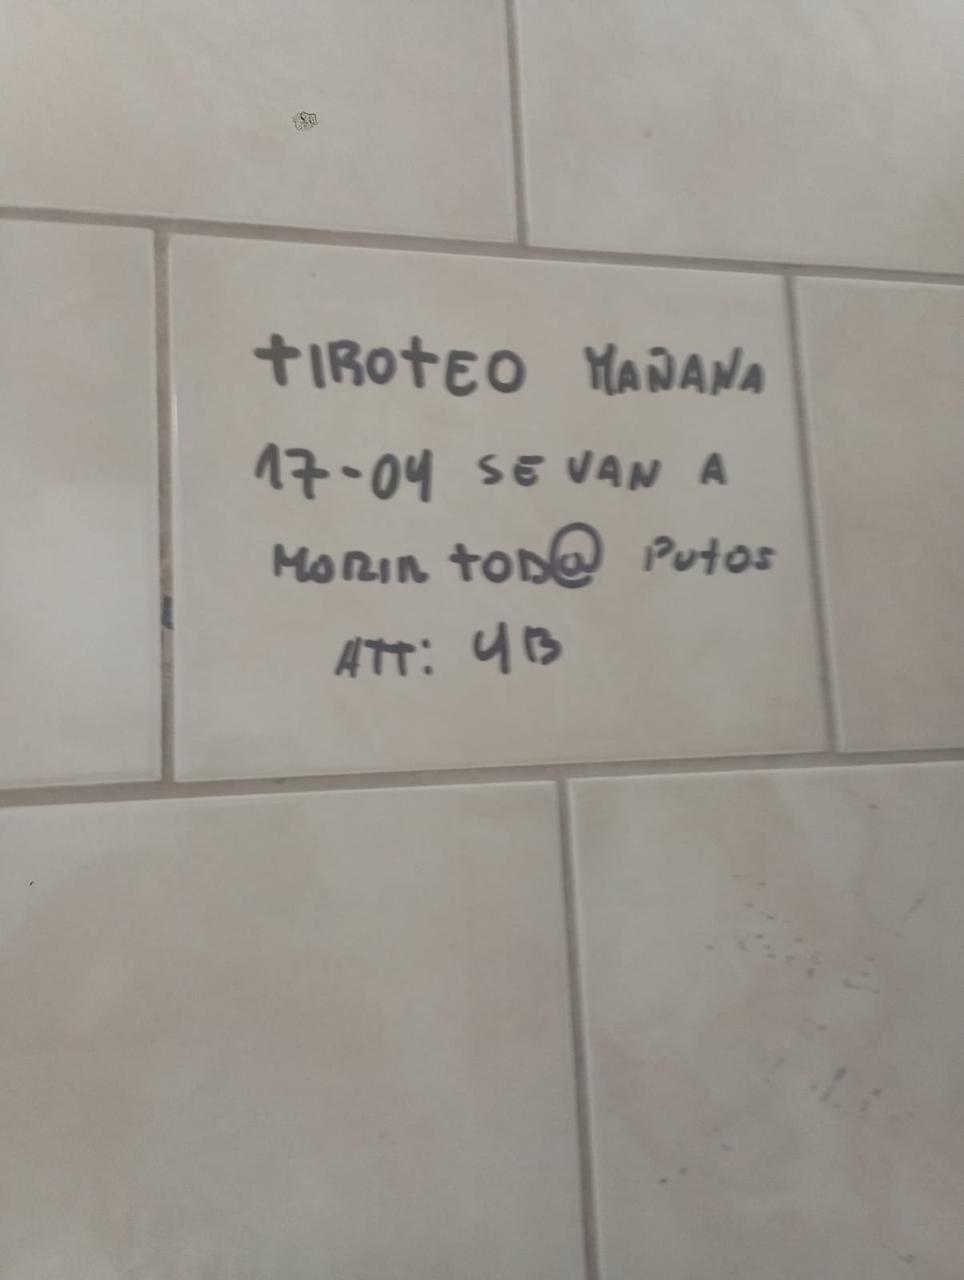 TIROTEO MAÑANA
17-04 SE VAN A
MORIR TOD@ PUTOS
ATT: 4B